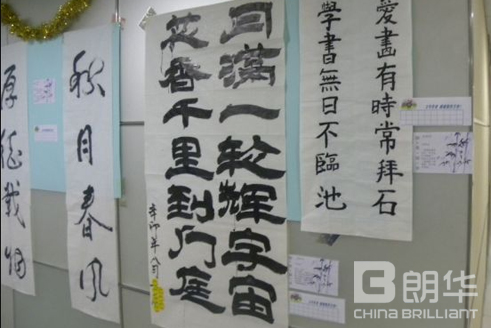 愛畫有時常拜石
學書無日不臨池
月满一轮辉宇宙
花香千里到门庭
辛卯年八月
秋月春风
厚德载物
朗华
CHINA BRILLIANT